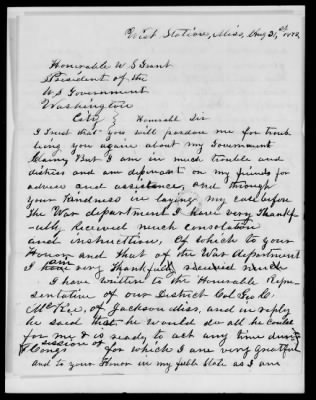 West Station, Miss, Aug 31st 1872,
Honorable U S Grant
President of the
U S Government
Washington
City } Honorable Sir
I trust that you will pardon me for troub
ling you again about my Government
Claim, But I am in much trouble and
distress and am dependant on my friends for
advice and assistance, and through
your kindness in laying my call before
The War department I have very thankf-
ully Received much consolation
and instruction, Of which to your
Honor and that of the War department
I am very Thankfully received much
I have written to the Honorable Repre-
sentative of our District Col Geo C.
McKee, of Jackson Miss, and in reply
he said that he would do all he could
for me & is ready to act any time during
session of Congs for which I are very grateful
and to your Honor in my feble State as I am